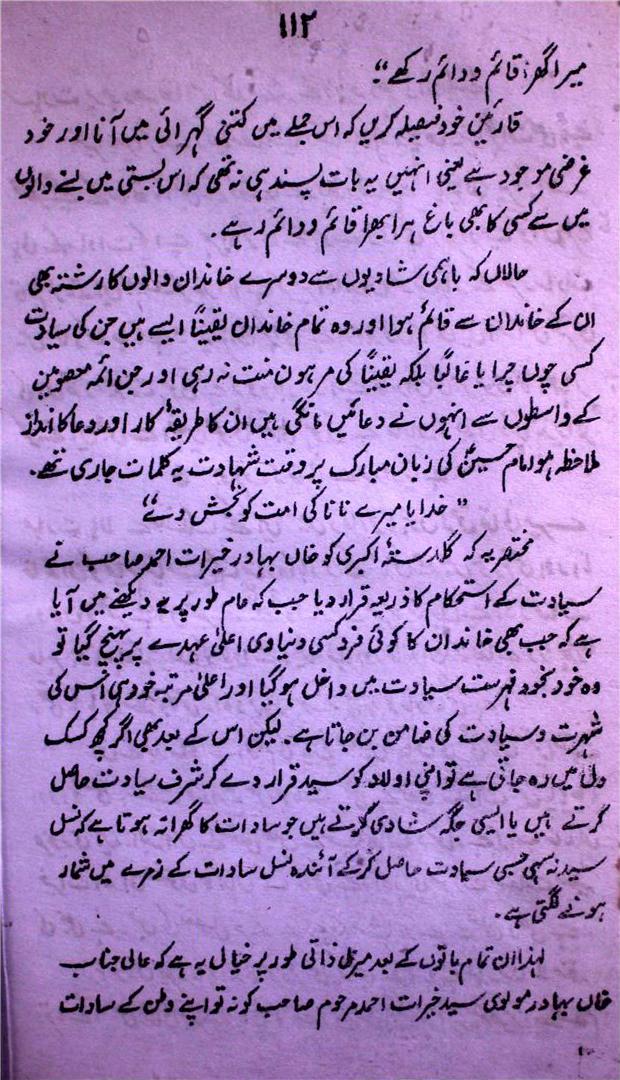 ۱۱۲
میرا گھر قائم و دائم رکھے“
قارئین خود فیصلہ کریں کہ اس جملے میں کتنی گہرائی میں آنا اور خود
غرضی موجود ہے یعنی انہیں یہ بات پسند ہی نہ تھی کہ اس بستی میں بسنے والوں
میں سے کسی کا بھی باغ ہرا بھرا قائم و دائم رہے۔
حالاں کہ باہمی شادیوں سے دوسرے خاندان والوں کا رشتہ بھی
ان کے خاندان سے قائم ہوا اور وہ تمام خاندان یقیناً ایسے ہیں جن کی سیادت
کسی چوں چرا یا غالباً بلکہ یقیناً کی مرہون منت نہ رہی اور جن ائمہ معصومین
کے واسطوں سے انہوں نے دعائیں مانگی ہیں ان کا طریقۂ کار اور دعا کا انداز
ملاحظہ ہو امام حسینؑ کی زبان مبارک پر وقت شہادت یہ کلمات جاری تھے۔
”خدایا میرے نانا کی امت کو بخش دے“
مختصر یہ کہ گلدستۂ اکبری کو خاں بہادر خیرات احمد صاحب نے
سیادت کے استحکام کا ذریعہ قرار دیا جب کہ عام طور پر یہ دیکھنے میں آیا
ہے کہ جب بھی خاندان کا کوئی فرد کسی دنیاوی اعلیٰ عہدے پر پہنچ گیا تو
وہ خود بخود فہرست سیادت میں داخل ہو گیا اور اعلیٰ مرتبہ خود ہی اس کی
شہرت و سیادت کی ضامن بن جاتا ہے۔ لیکن اس کے بعد بھی اگر کچھ کسک
دل میں رہ جاتی ہے تو اپنی اولاد کو سید قرار دے کر شرف سیادت حاصل
کرتے ہیں یا ایسی جگہ شادی کرتے ہیں جو سادات کا گھرانہ ہوتا ہے کہ نسل
سید نہ سہی حسبی سیادت حاصل کر کے آئندہ نسل سادات کے زمرے میں شمار
ہونے لگتی ہے۔
لہذا ان تمام باتوں کے بعد میرا ذاتی طور پر خیال یہ ہے کہ عالی جناب
خاں بہادر مولوی سید خیرات احمد مرحوم صاحب کو نہ تو اپنے وطن کے سادات